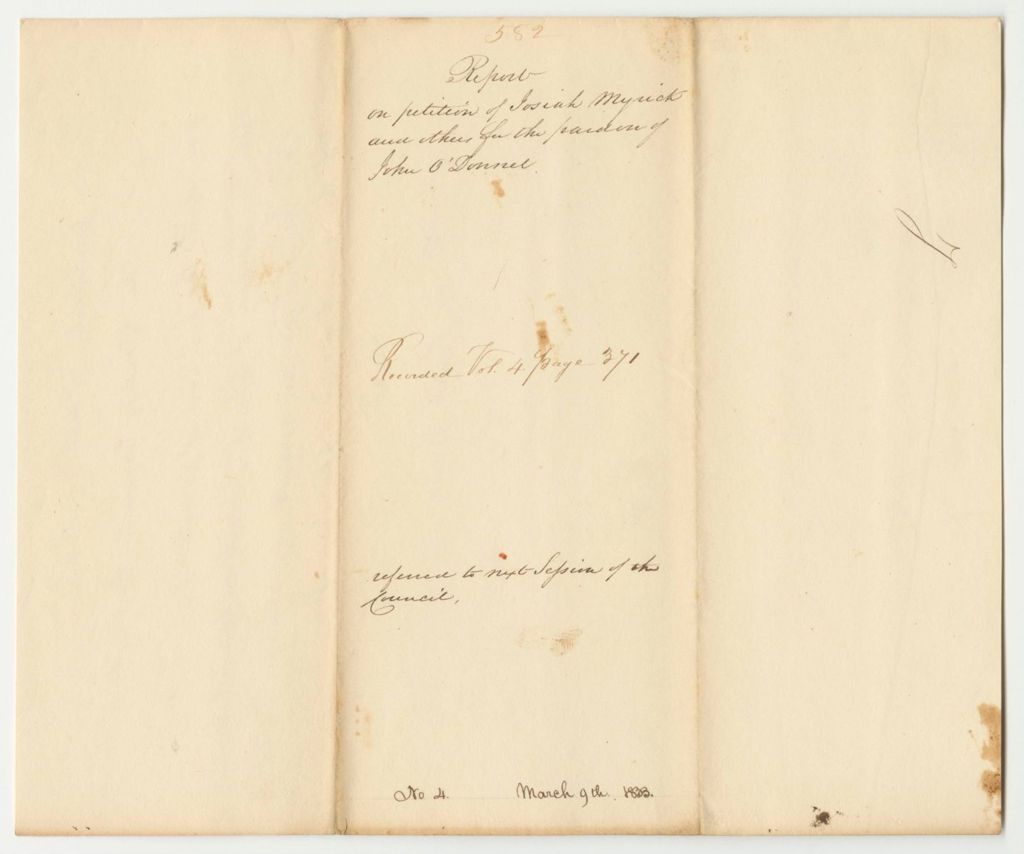 582
Report
on petition of Josiah Myrick
and others for the pardon of
John O'Donnel.
Recorded Vol. 4 page 371
referred to next Session of the
Council.
No 4. March 9th. 1833.